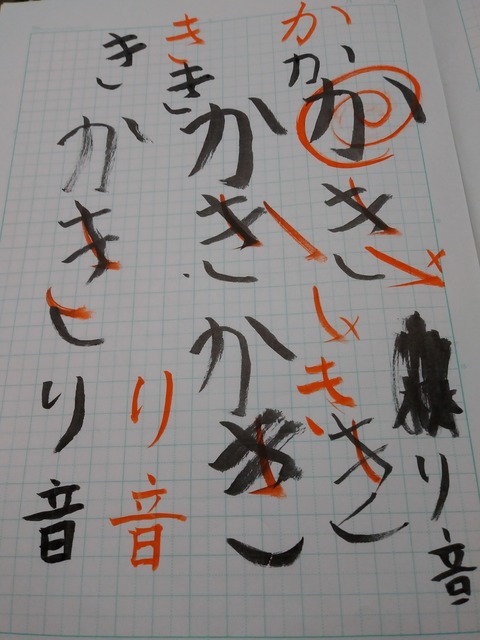 り音
かかかき
きき
ききかきかき
り音
きかきり音